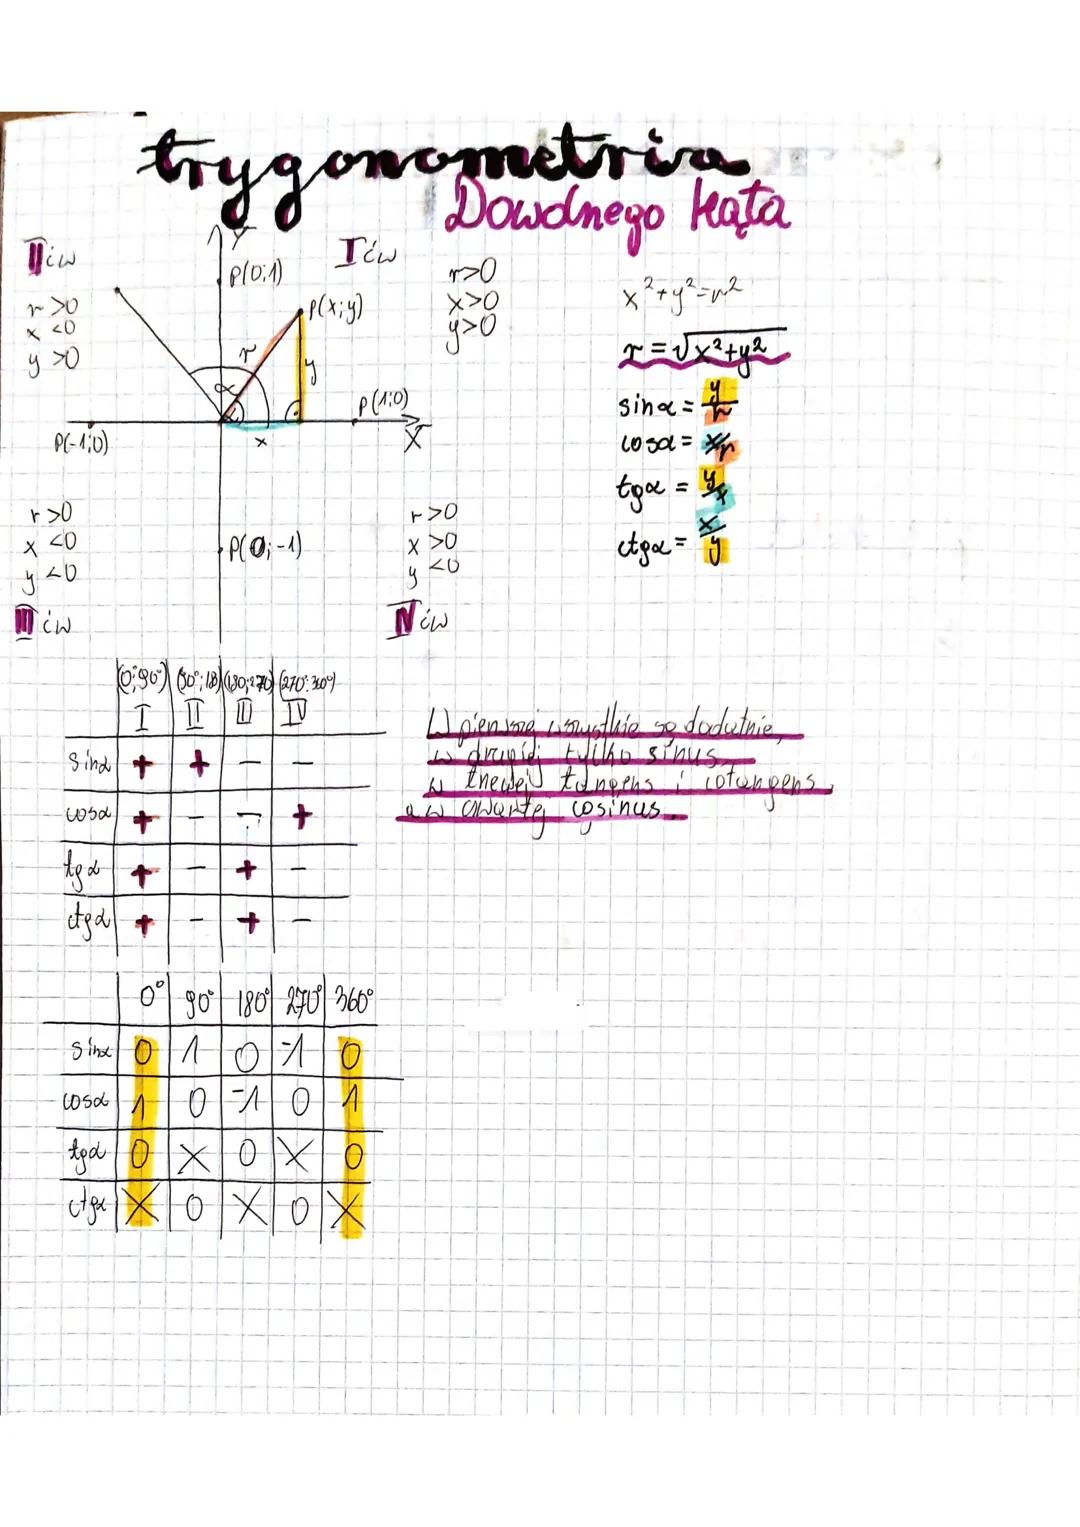 trygonometria
Dowolnego kąta
II ćw
r>0
x<0
y>0
Y
P(0;1)
I ćw
P(x;y)
r
y
α
x
P(1;0)
X
P(-1;0)
r>0
x>0
y>0
x²+y²=r²
r=√x²+y²
sinα = y/r
cosα = x/r
tgα = y/x
ctgα = x/y
r>0
x<0
y<0
III ćw
P(0;-1)
r>0
x>0
y<0
IV ćw
(0°;90°) (90°;18) (180;270) (270°;360°)
I II III IV
sinα + + - -
cosα + - - +
tgα + - + -
ctgα + - + -
W pierwszej wszystkie są dodatnie,
w drugiej tylko sinus,
w trzeciej tangens i cotangens,
a w czwartej cosinus.
0° 90° 180° 270° 360°
sinα 0 1 0 -1 0
cosα 1 0 -1 0 1
tgα 0 X 0 X 0
ctgα X 0 X 0 X